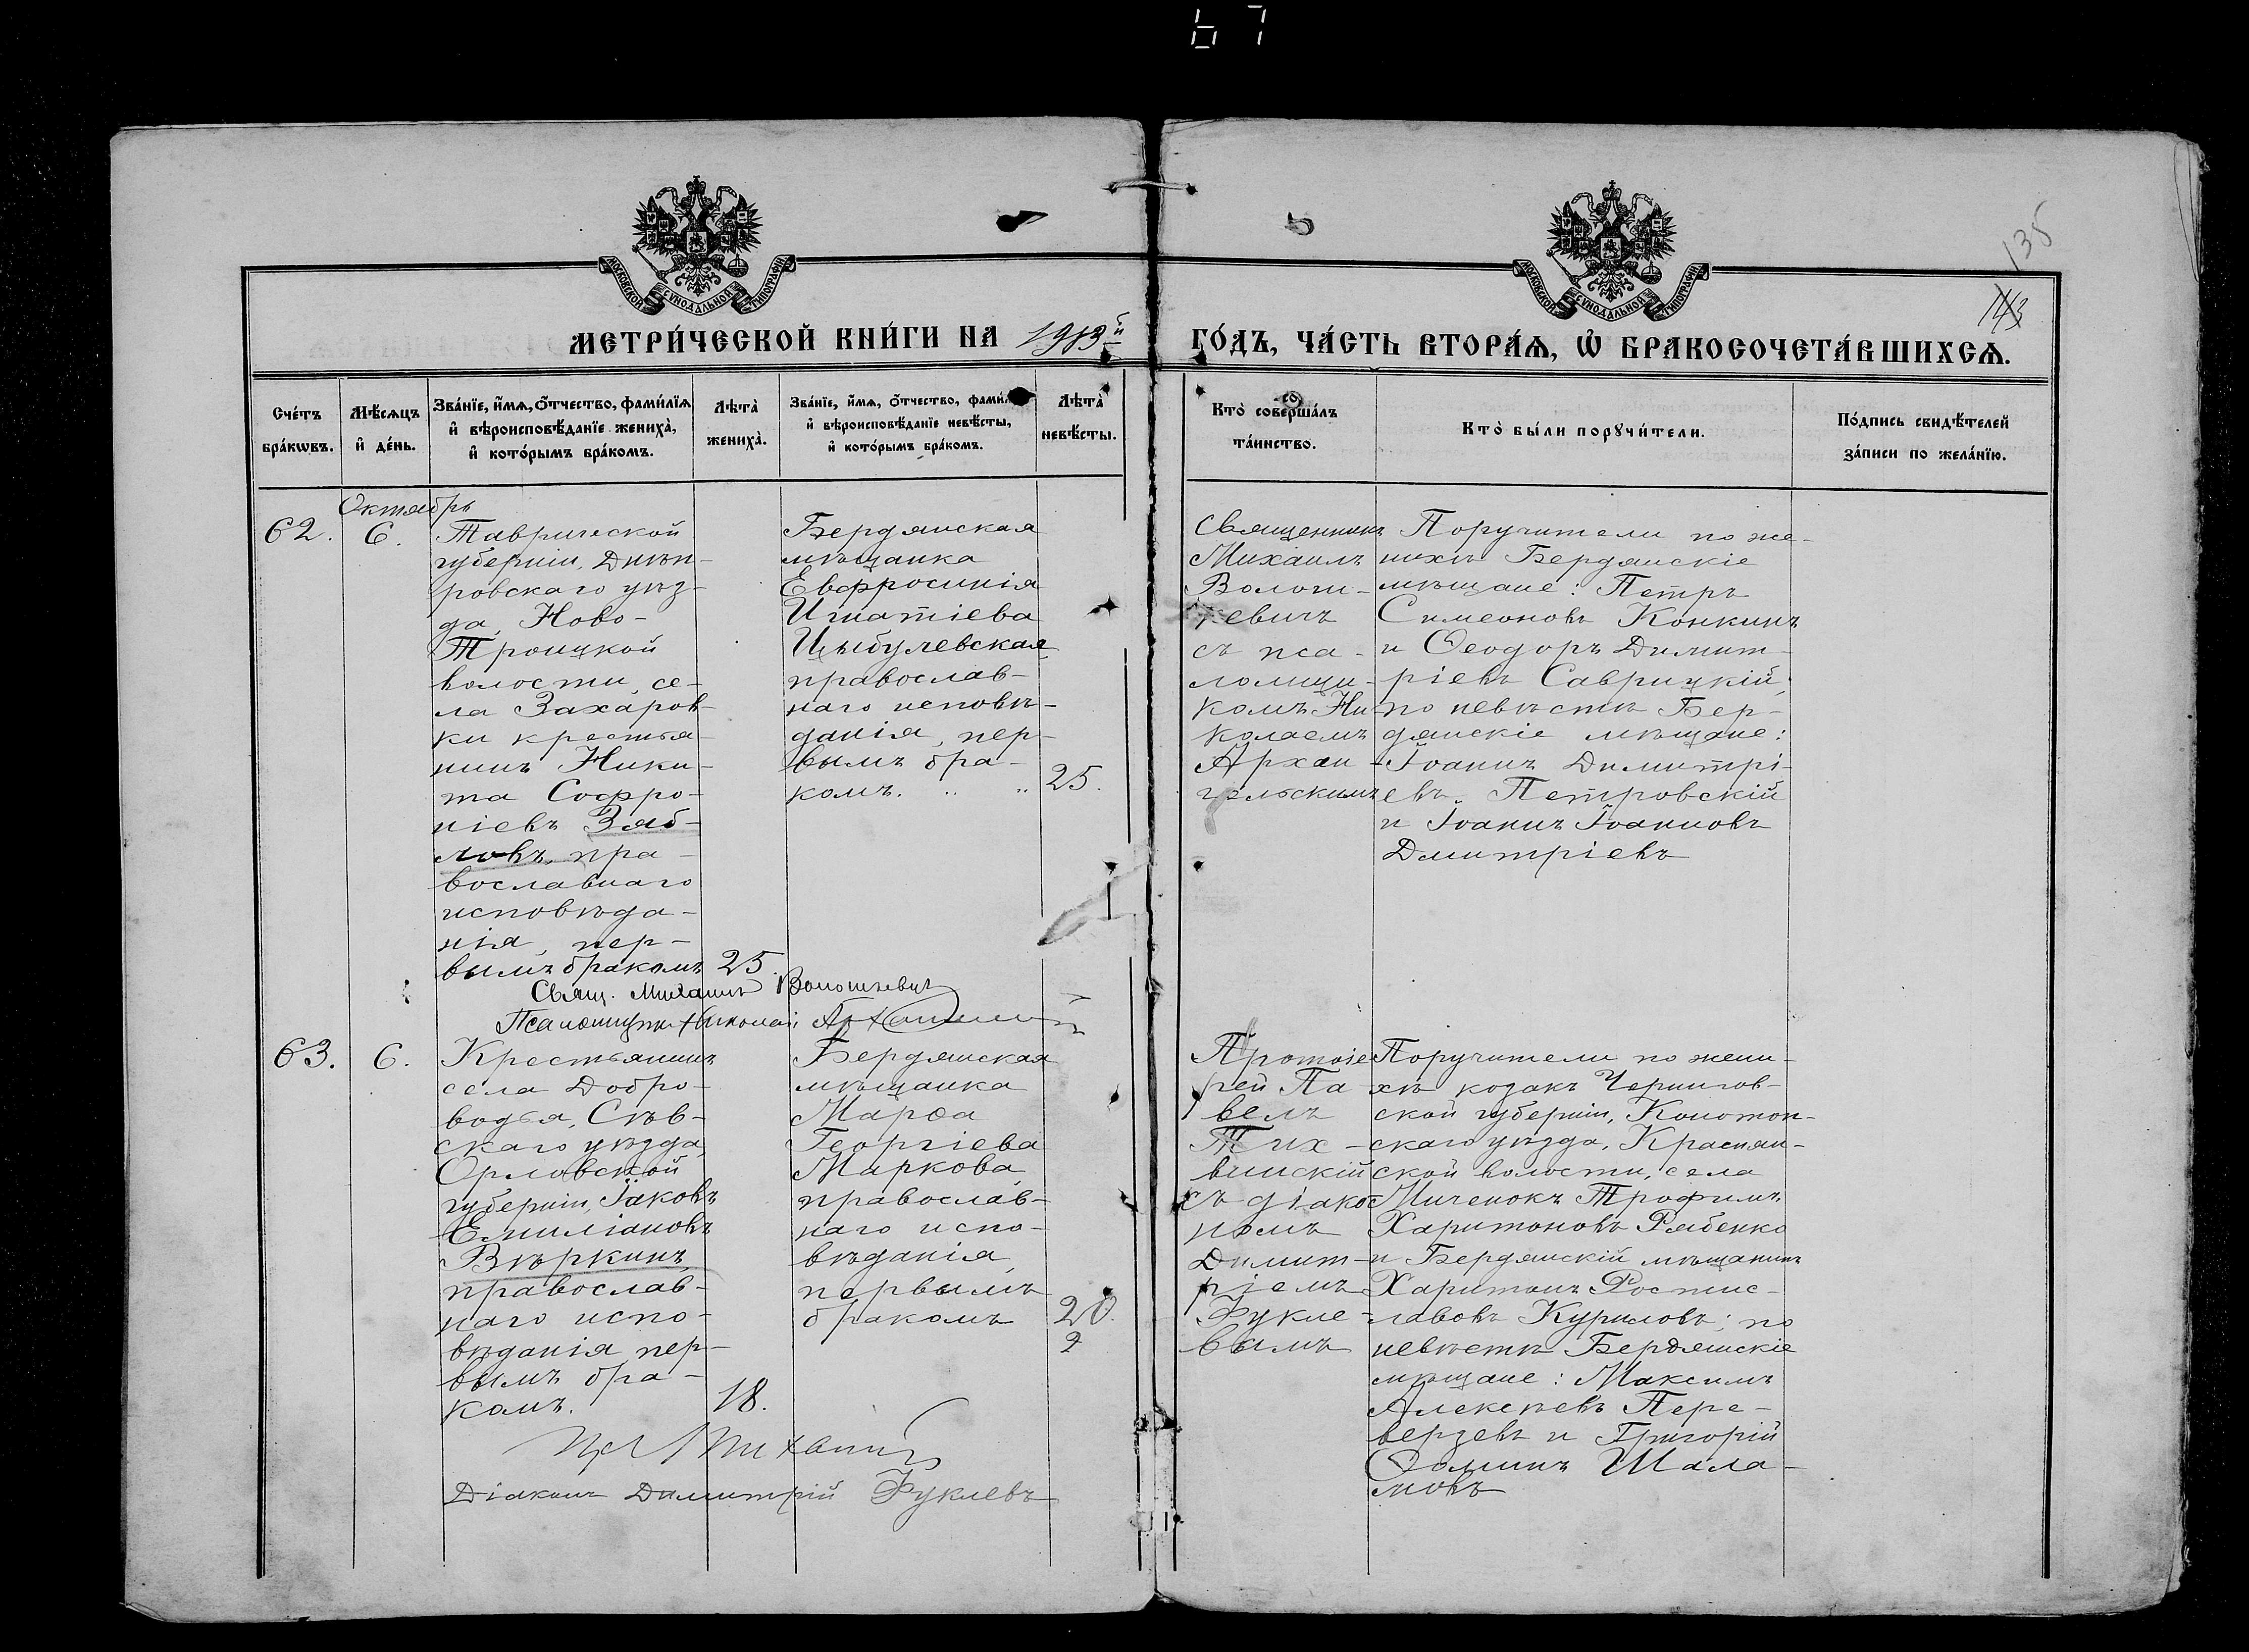 67
135
143
МОСКОВСКОЙ СѴНОДАЛЬНОЙ ТИПОГРАФІИ
МОСКОВСКОЙ СѴНОДАЛЬНОЙ ТИПОГРАФІИ
МЕТРИ́ЧЕСКОЙ КНИ́ГИ НА 1913й ГО́ДЪ, ЧА́СТЬ ВТОРА́Ѧ, Ѡ҆ БРАКОСОЧЕТА́ВШИХСѦ.
Сче́тъ
бра́кѡвъ.
Мѣ́сѧцъ
и҆ де́нь.
Зва́нїе, и҆́мѧ, ѻ҆́тчество, фами́лїѧ
и҆ вѣроисповѣ́данїе жениха̀,
и҆ кото́рымъ бра́комъ.
Лѣта̀
жениха̀.
Зва́нїе, и҆́мѧ, ѻ҆́тчество, фами́л
и҆ вѣроисповѣ́данїе невѣ́сты,
и҆ кото́рымъ бра́комъ.
Лѣта̀
невѣ́сты.
Кто̀ соверша́лъ
та́инство.
Кто̀ бы́ли порꙋчи́тели.
По́дпись свидѣ́телей
за́писи по жела́нїю.
Октябрь
62.
6.
Таврической
губерніи, Днѣп-
ровскаго уѣз-
да, Ново-
Троицкой
волости, се-
ла Захаров-
ки крестья-
нинъ Ники-
та Софро-
ніевъ Зяб-
ловъ, пра-
вославнаго
исповѣда-
нія, пер-
вымъ бракомъ
25.
Бердянская
мѣщанка
Евфросинія
Игнатіева
Цыбулевская,
православ-
наго исповѣ-
данія, пер-
вымъ бра-
комъ. " "
25.
Священникъ
Михаилъ
Волоши-
кевичъ
съ пса-
ломщи-
комъ Ни-
колаемъ
Архан-
гельскимъ
Поручители по же-
нихѣ Бердянскіе
мѣщане: Петръ
Симеоновъ Конкинъ
и Ѳеодоръ Димит-
ріевъ Саврицкій;
по невѣстѣ Бер-
дянскіе мѣщане:
Іоаннъ Димитрі-
евъ Петровскій
и Іоаннъ Іоанновъ
Дмитріевъ
Свящ. Михаилъ
Псаломщикъ Николай
63.
6.
Крестьянинъ
села Добро-
водья, Сѣв-
скаго уѣзда,
Орловской
губерніи, Іаковъ
Емиліановъ
Вѣркинъ,
православ-
наго испо-
вѣданія пер-
вымъ бра-
комъ.
18.
Бердянская
мѣщанка
Марѳа
Георгіева
Маркова,
православ-
наго испо-
вѣданія,
первымъ
бракомъ
20.
2
Протоіе-
рей Па-
велъ
Тих-
винскій
съ діако-
номъ
Димит-
ріемъ
Фукле-
вымъ
Поручители по жени-
хѣ козакъ Чернигов-
ской губерніи, Конотоп-
скаго уѣзда, Краснян-
ской волости, села
Миченокъ Трофимъ
Харитоновъ Рябенко
и Бердянскій мѣщанинъ
Харитонъ Ростис-
лавовъ Куриловъ; по
невѣстѣ Бердянскіе
мѣщане: Максимъ
Алексѣевъ Пере-
верзевъ и Григорій
Ѳоминъ Шала-
мовъ
Діаконъ Димитрій Фуклевъ